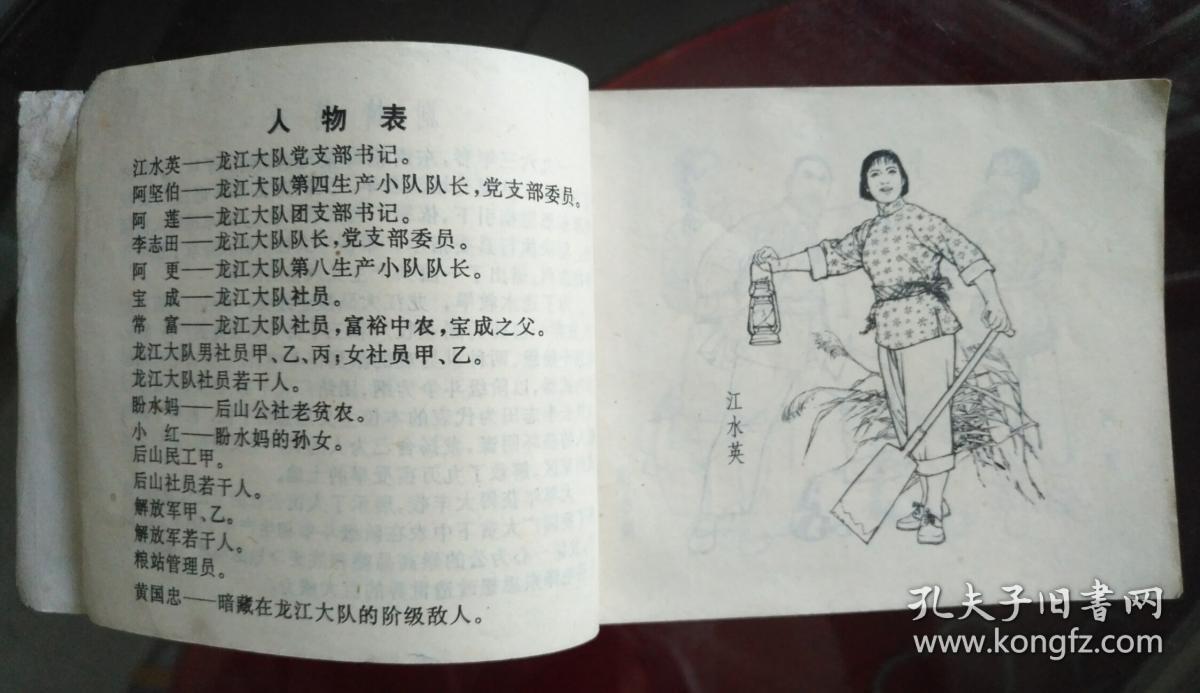 人物表
江水英——龙江大队党支部书记。
阿坚伯——龙江大队第四生产小队队长，党支部委员。
阿 莲——龙江大队团支部书记。
李志田——龙江大队队长，党支部委员。
阿 更——龙江大队第八生产小队队长。
宝 成——龙江大队社员。
常 富——龙江大队社员，富裕中农，宝成之父。
龙江大队男社员甲、乙、丙；女社员甲、乙。
龙江大队社员若干人。
盼水妈——后山公社老贫农。
小 红——盼水妈的孙女。
后山民工甲。
后山社员若干人。
解放军甲、乙。
解放军若干人。
粮站管理员。
黄国忠——暗藏在龙江大队的阶级敌人。
江水英
孔夫子旧书网
www.kongfz.com